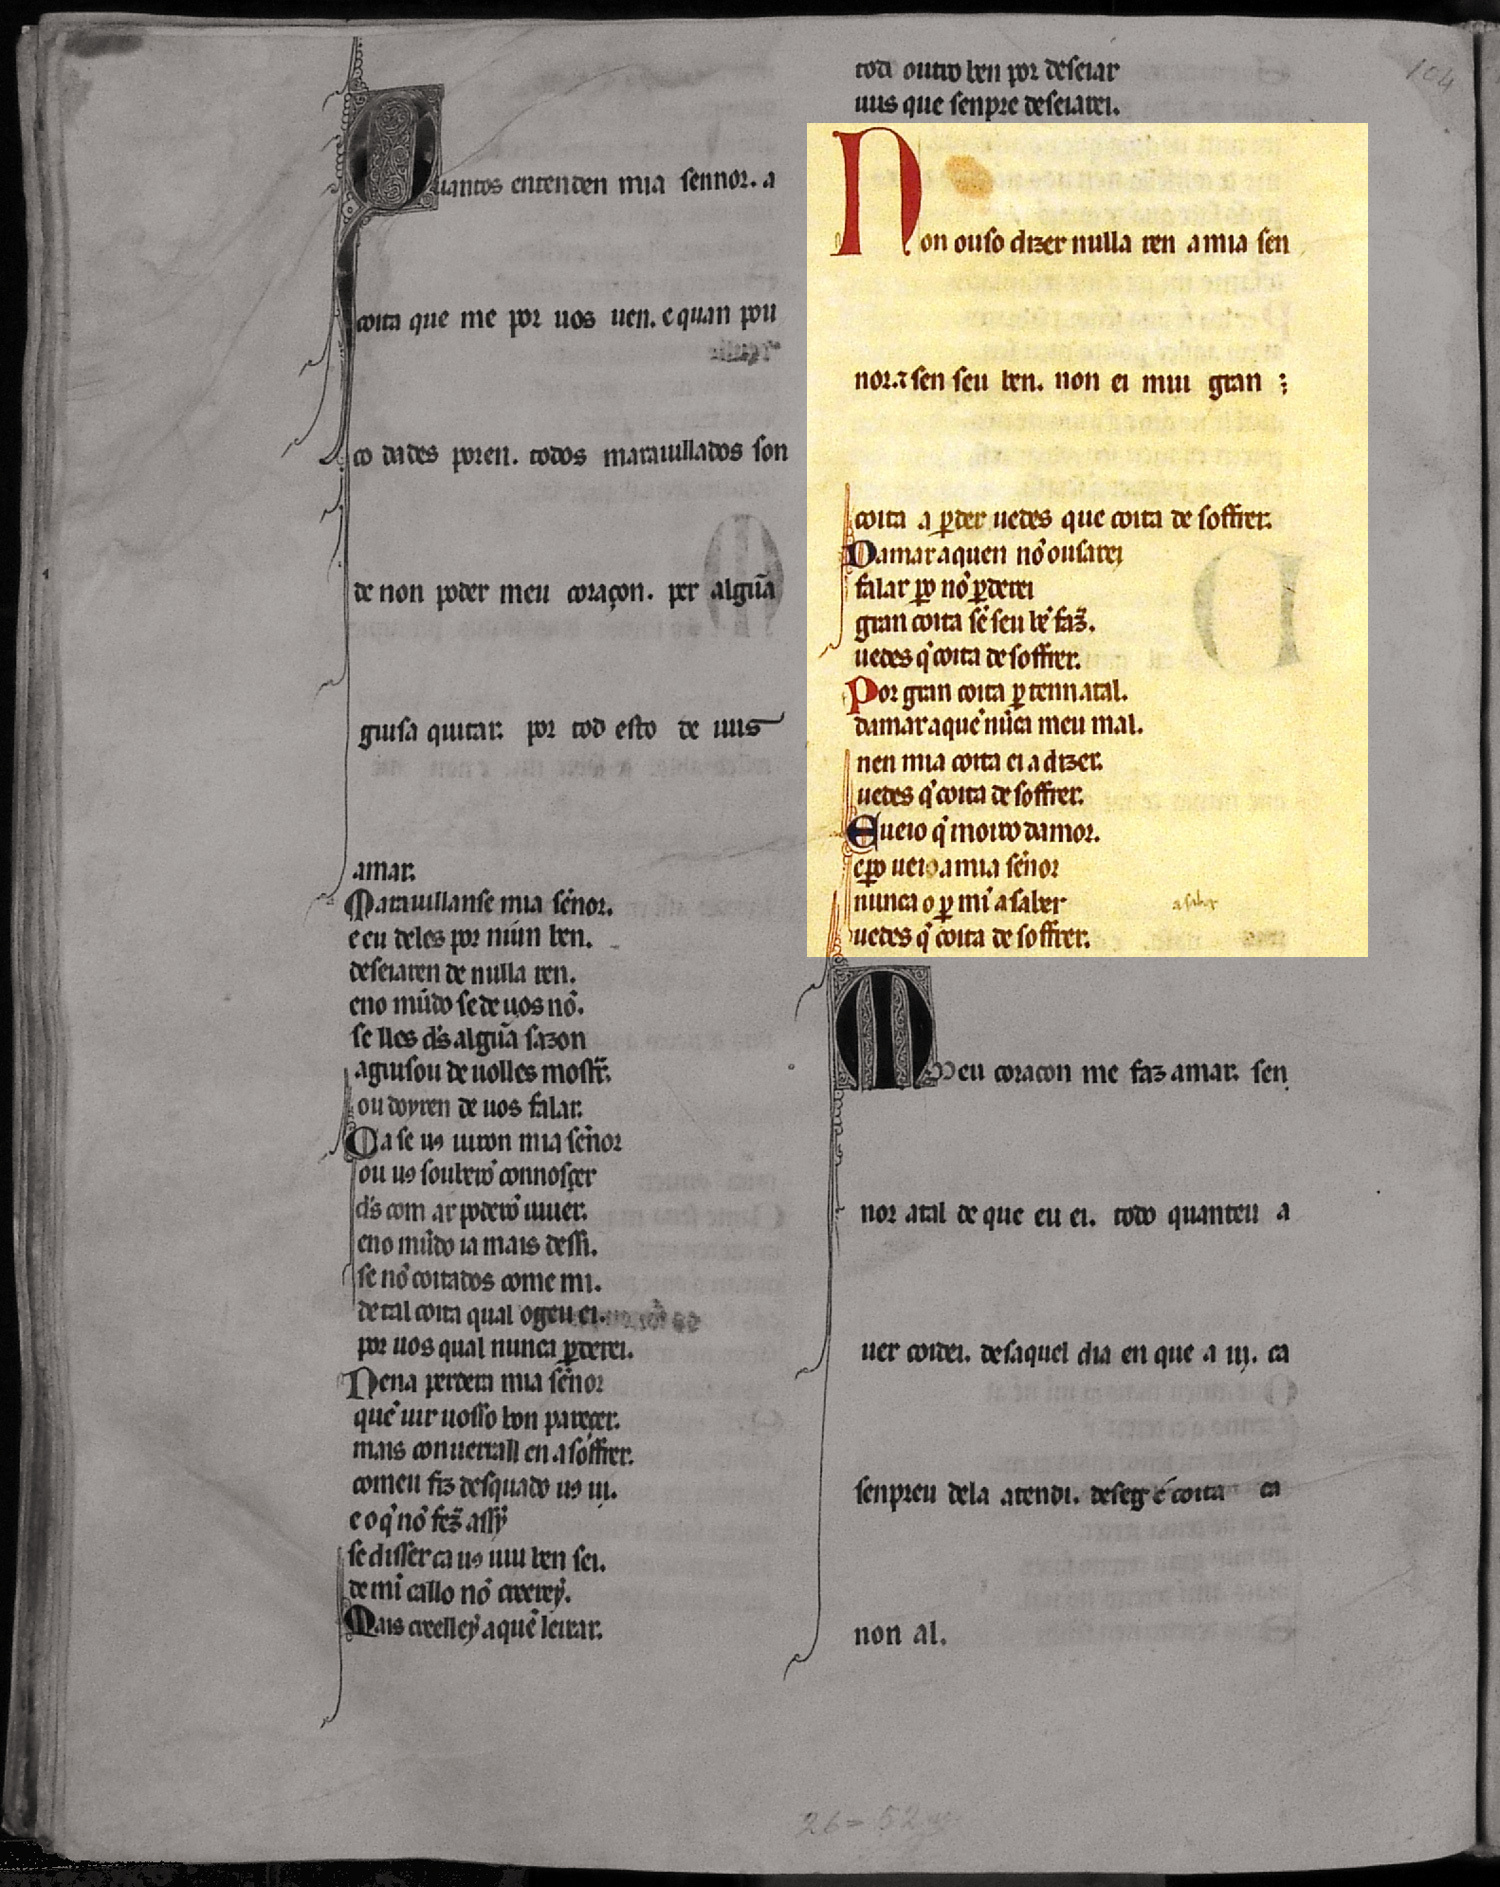 Quantos entenden mia sennor. a
coita que me por uos uen. e quan pou
co dades poren. todos marauillados son
de non poder meu coraçon. per algũa
guisa quitar. por tod esto de uus
amar.
Marauillanse mia sẽnor.
e eu deles por niũn ben.
deseiaren de nulla ren.
eno mũdo se de uos nõ.
se lles d̃s algũa sazon
aguisou de uolles mostr̃.
ou doyren de uos falar.
Ca se uꝯ uiron mia señor
ou uꝯ souberõ connosçer
d̃s com ar poderõ uiuer.
eno mũdo ia mais dessi.
se nõ coitados come mi.
de tal coita qual ogeu ei.
por uos qual nunca ꝑderei.
Nena perdera mia señor
quẽ uir uosso bon pareçer.
mais conuerrall en a soffrer.
comeu fiz desquãdo uꝯ ui.
e o q̃ nõ fez̃ assy
se disser ca uꝯ uiu ben sei.
de mĩ callo nõ creerey̆.
Mais creelley̆ a quẽ leixar.
tod outro ben por deseiar
uus que senpre deseiarei.
Non ouso dizer nulla ren a mia sen
nor. ⁊ sen seu ben. non ei mui gran ;
coita a ꝑder uedes que coita de soffrer.
Damar a quen nõ ousarei
falar ꝑo nõ ꝑderei
gran coita sẽ seu bẽ faz̃.
uedes q̃ coita de soffrer.
Por gran coita ꝑ tenn atal.
damar a quẽ nũca meu mal.
nen mia coita ei a dizer.
uedes q̃ coita de soffrer.
E ueio q̃ moiro damor.
e ꝑo ueio a mia señor
nunca o ꝑ mĩ a saber
a saber
uedes q̃ coita de soffrer.
Meu coracon me faz amar. sen
nor atal de que eu ei. todo quanteu a
uer coidei. desaquel dia en que a ui. ca
senpreu dela atendi. deseg̃ e coita ca
non al.
104
26 = 52